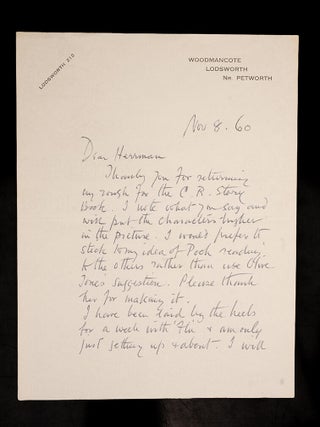 LODSWORTH 212
WOODMANCOTE
LODSWORTH
NR. PETWORTH
Nov 8. 60
Dear Herrman
Thank you for returning
my rough for the C. R. Story
Book. I note what you say and
will put the characters higher
in the picture. I would prefer to
stick to my idea of Pooh reading
to the others rather than use Olive
Jones suggestion. Please thank
her for making it.
I have been laid by the heels
for a week with 'Flu' & am only
just getting up & about. I will